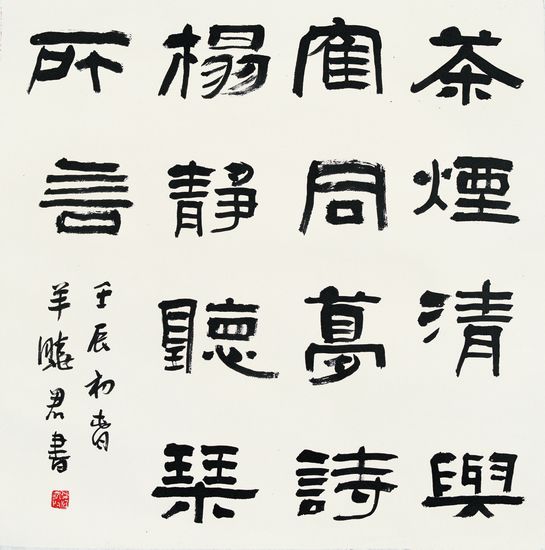 茶煙清與
隺同夢詩
榻靜聽琴
所言
壬辰初春
羊曉君書